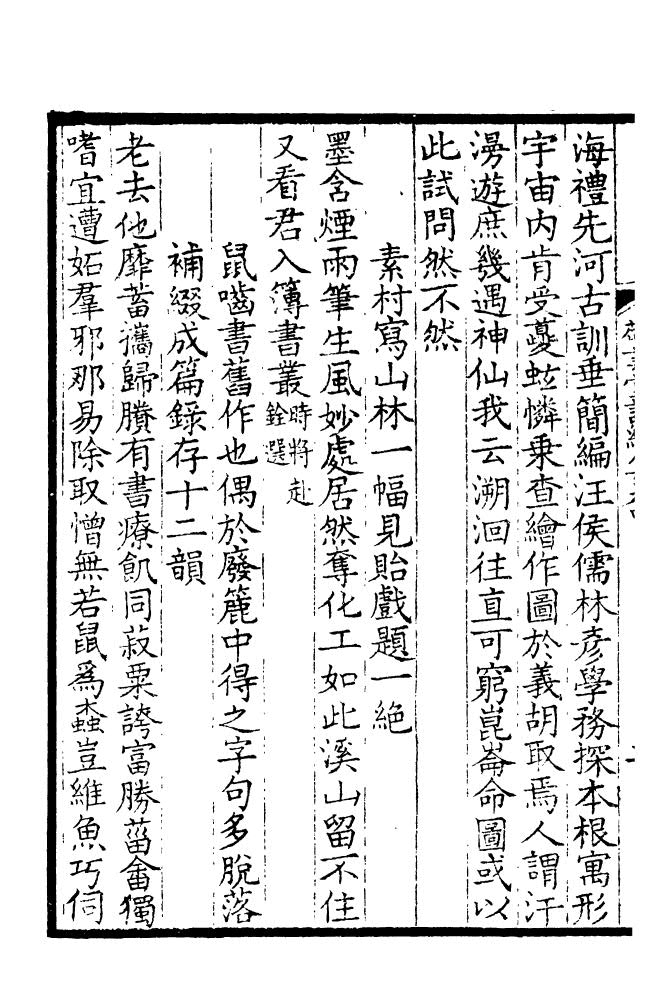 海禮先河古訓垂簡編汪侯儒林彥學務探本根寓形
宇宙內肯受夔蚿憐乗查繪作圖於義胡取焉人謂汗
漫遊庶幾遇神仙我云溯洄往直可窮崑崙命圖或以
此試問然不然
素村寫山林一幅見貽戲題一絕
墨含煙雨筆生風妙處居然奪化工如此溪山留不住
又看君入簿書叢時將赴銓選
鼠嚙書舊作也偶於廢簏中得之字句多脫落
補綴成篇錄存十二韻
老去他靡蓄攜歸賸有書療飢同菽粟誇富勝菑畬獨
嗜宜遭妬羣邪那易除取憎無若鼠爲蠧豈維魚巧伺